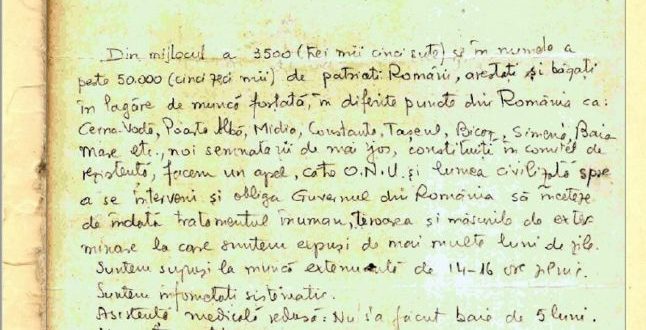 Din mijlocul a 3500 (trei mii cinci sute) și în numele a
peste 50.000 (cinci zeci mii) de patrioti Români, arestați și băgați
în lagăre de muncă forțată, în diferite puncte din România ca:
Cerna-Vodă, Poarta Albă, Midia, Constanta, Tașeul, Bicaz, Simeria, Baia
Mare etc., noi semnatarii de mai jos, constituiți în comitet de
rezistență, facem un apel, catre O.N.U. și lumea civilizată spre
a se interveni și obliga Guvernul din România să înceteze
de îndată tratamentul inuman, teroarea și măsurile de exter
minare la care suntem expuși de mai multe luni de zile.
Suntem supuși la muncă extenuantă de 14-16 ore zilnic.
Suntem infometati sistematic.
Asistentă medicală redusă: Nu s'a făcut baie de 5 luni.